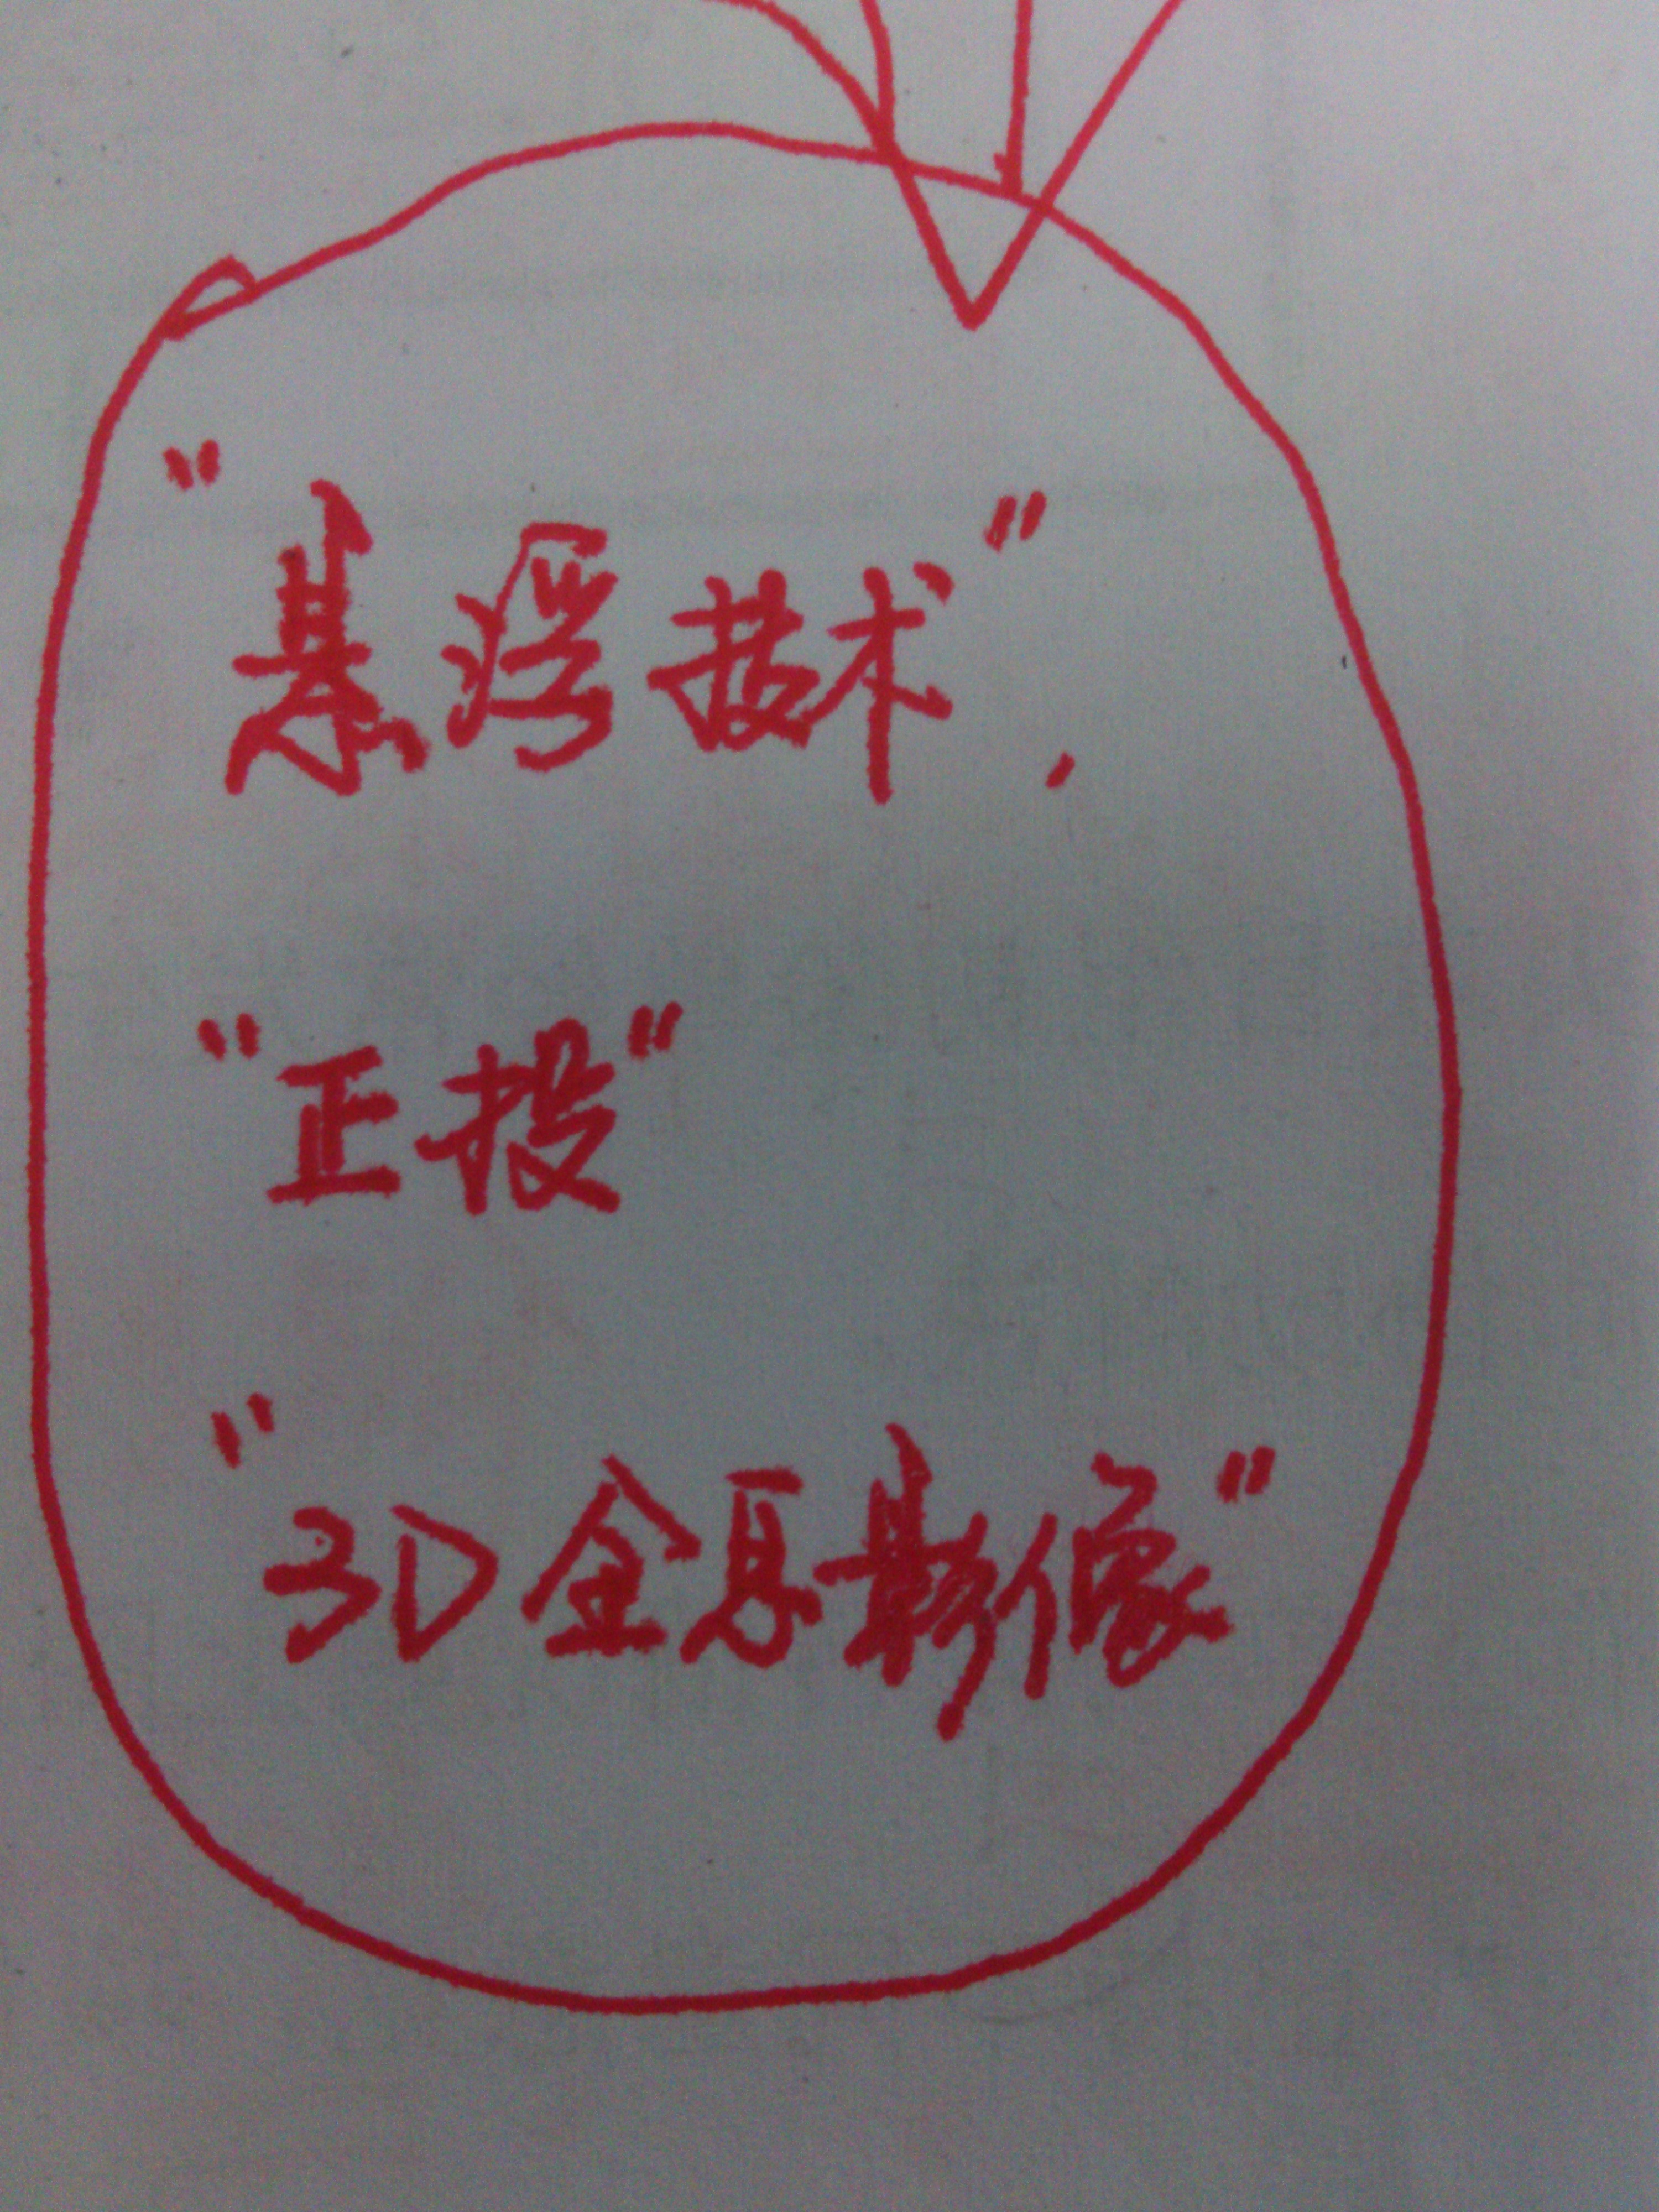 “悬浮技术”，
“正投”
“3D全息影像”